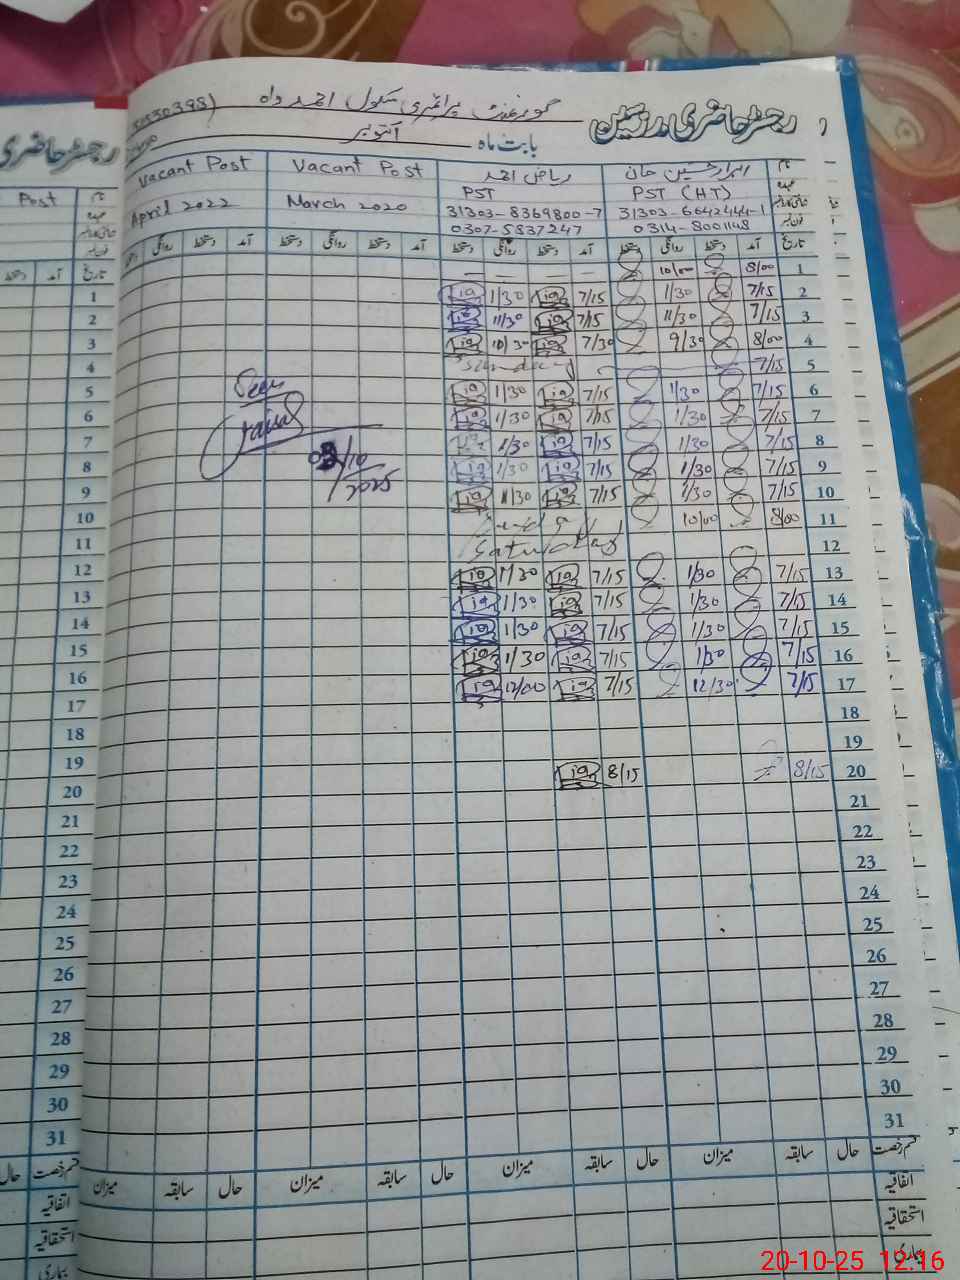 رجسٹر حاضری مدرسین
گورنمنٹ پرائمری سکول احمد واہ
بابت ماہ اکتوبر
نام ریاض احمد Vacant Post Vacant Post
عہدہ PST (HT) PST
31303-6642444-1 31303-8369800-7 March 2020 April 2022
0314-8001148 0307-5837247
تاریخ آمد دستخط روانگی دستخط آمد دستخط روانگی دستخط آمد دستخط روانگی دستخط آمد دستخط روانگی دستخط
1 8/00 10/00 — — — —
2 7/15 1/30 7/15 1/30
3 7/15 11/30 7/15 11/30
4 8/00 9/30 7/30 10/30
5 7/15 Sunday
6 7/15 1/30 7/15 1/30
7 7/15 1/30 7/15 1/30
8 7/15 1/30 7/15 1/30
9 7/15 1/30 7/15 1/30
10 7/15 1/30 7/15 11/30
11 8/00 10/00
12
13 7/15 1/30 7/15 1/30
14 7/15 1/30 7/15 1/30
15 7/15 1/30 7/15 1/30
16 7/15 1/30 7/15 1/30
17 7/15 12/30 7/15 12/00
18
19
20 8/15 8/15
21
22
23
24
25
26
27
28
29
30
31
Seen
03/10/2025
قسم رخصت حال سابقہ میزان حال سابقہ میزان حال سابقہ میزان حال سابقہ میزان
اتفاقیہ
استحقاقیہ
بیماری
رجسٹر حاضری
Post نام
عہدہ
تاریخ آمد دستخط
1
2
3
4
5
6
7
8
9
10
11
12
13
14
15
16
17
18
19
20
21
22
23
24
25
26
27
28
29
30
31
قسم رخصت حال
اتفاقیہ
استحقاقیہ
بیماری
20-10-25 12:16